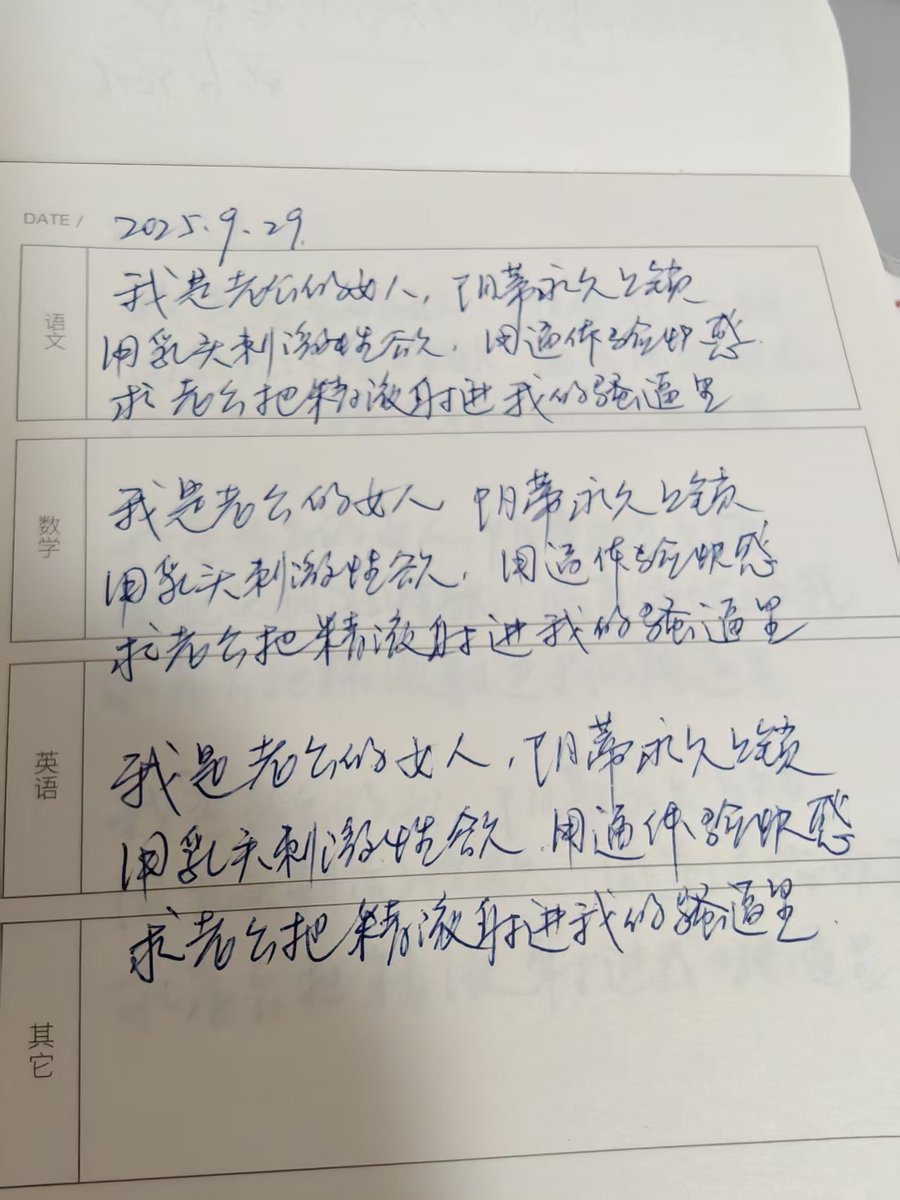 DATE / 2025.9.29.
语文
我是老公的女人，阴蒂永久上锁
用乳头刺激性欲，用逼体验快感.
求老公把精液射进我的骚逼里
数学
我是老公的女人 阴蒂永久上锁
用乳头刺激性欲，用逼体验快感
求老公把精液射进我的骚逼里
英语
我是老公的女人，阴蒂永久上锁
用乳头刺激性欲 用逼体验快感
求老公把精液射进我的骚逼里.
其它